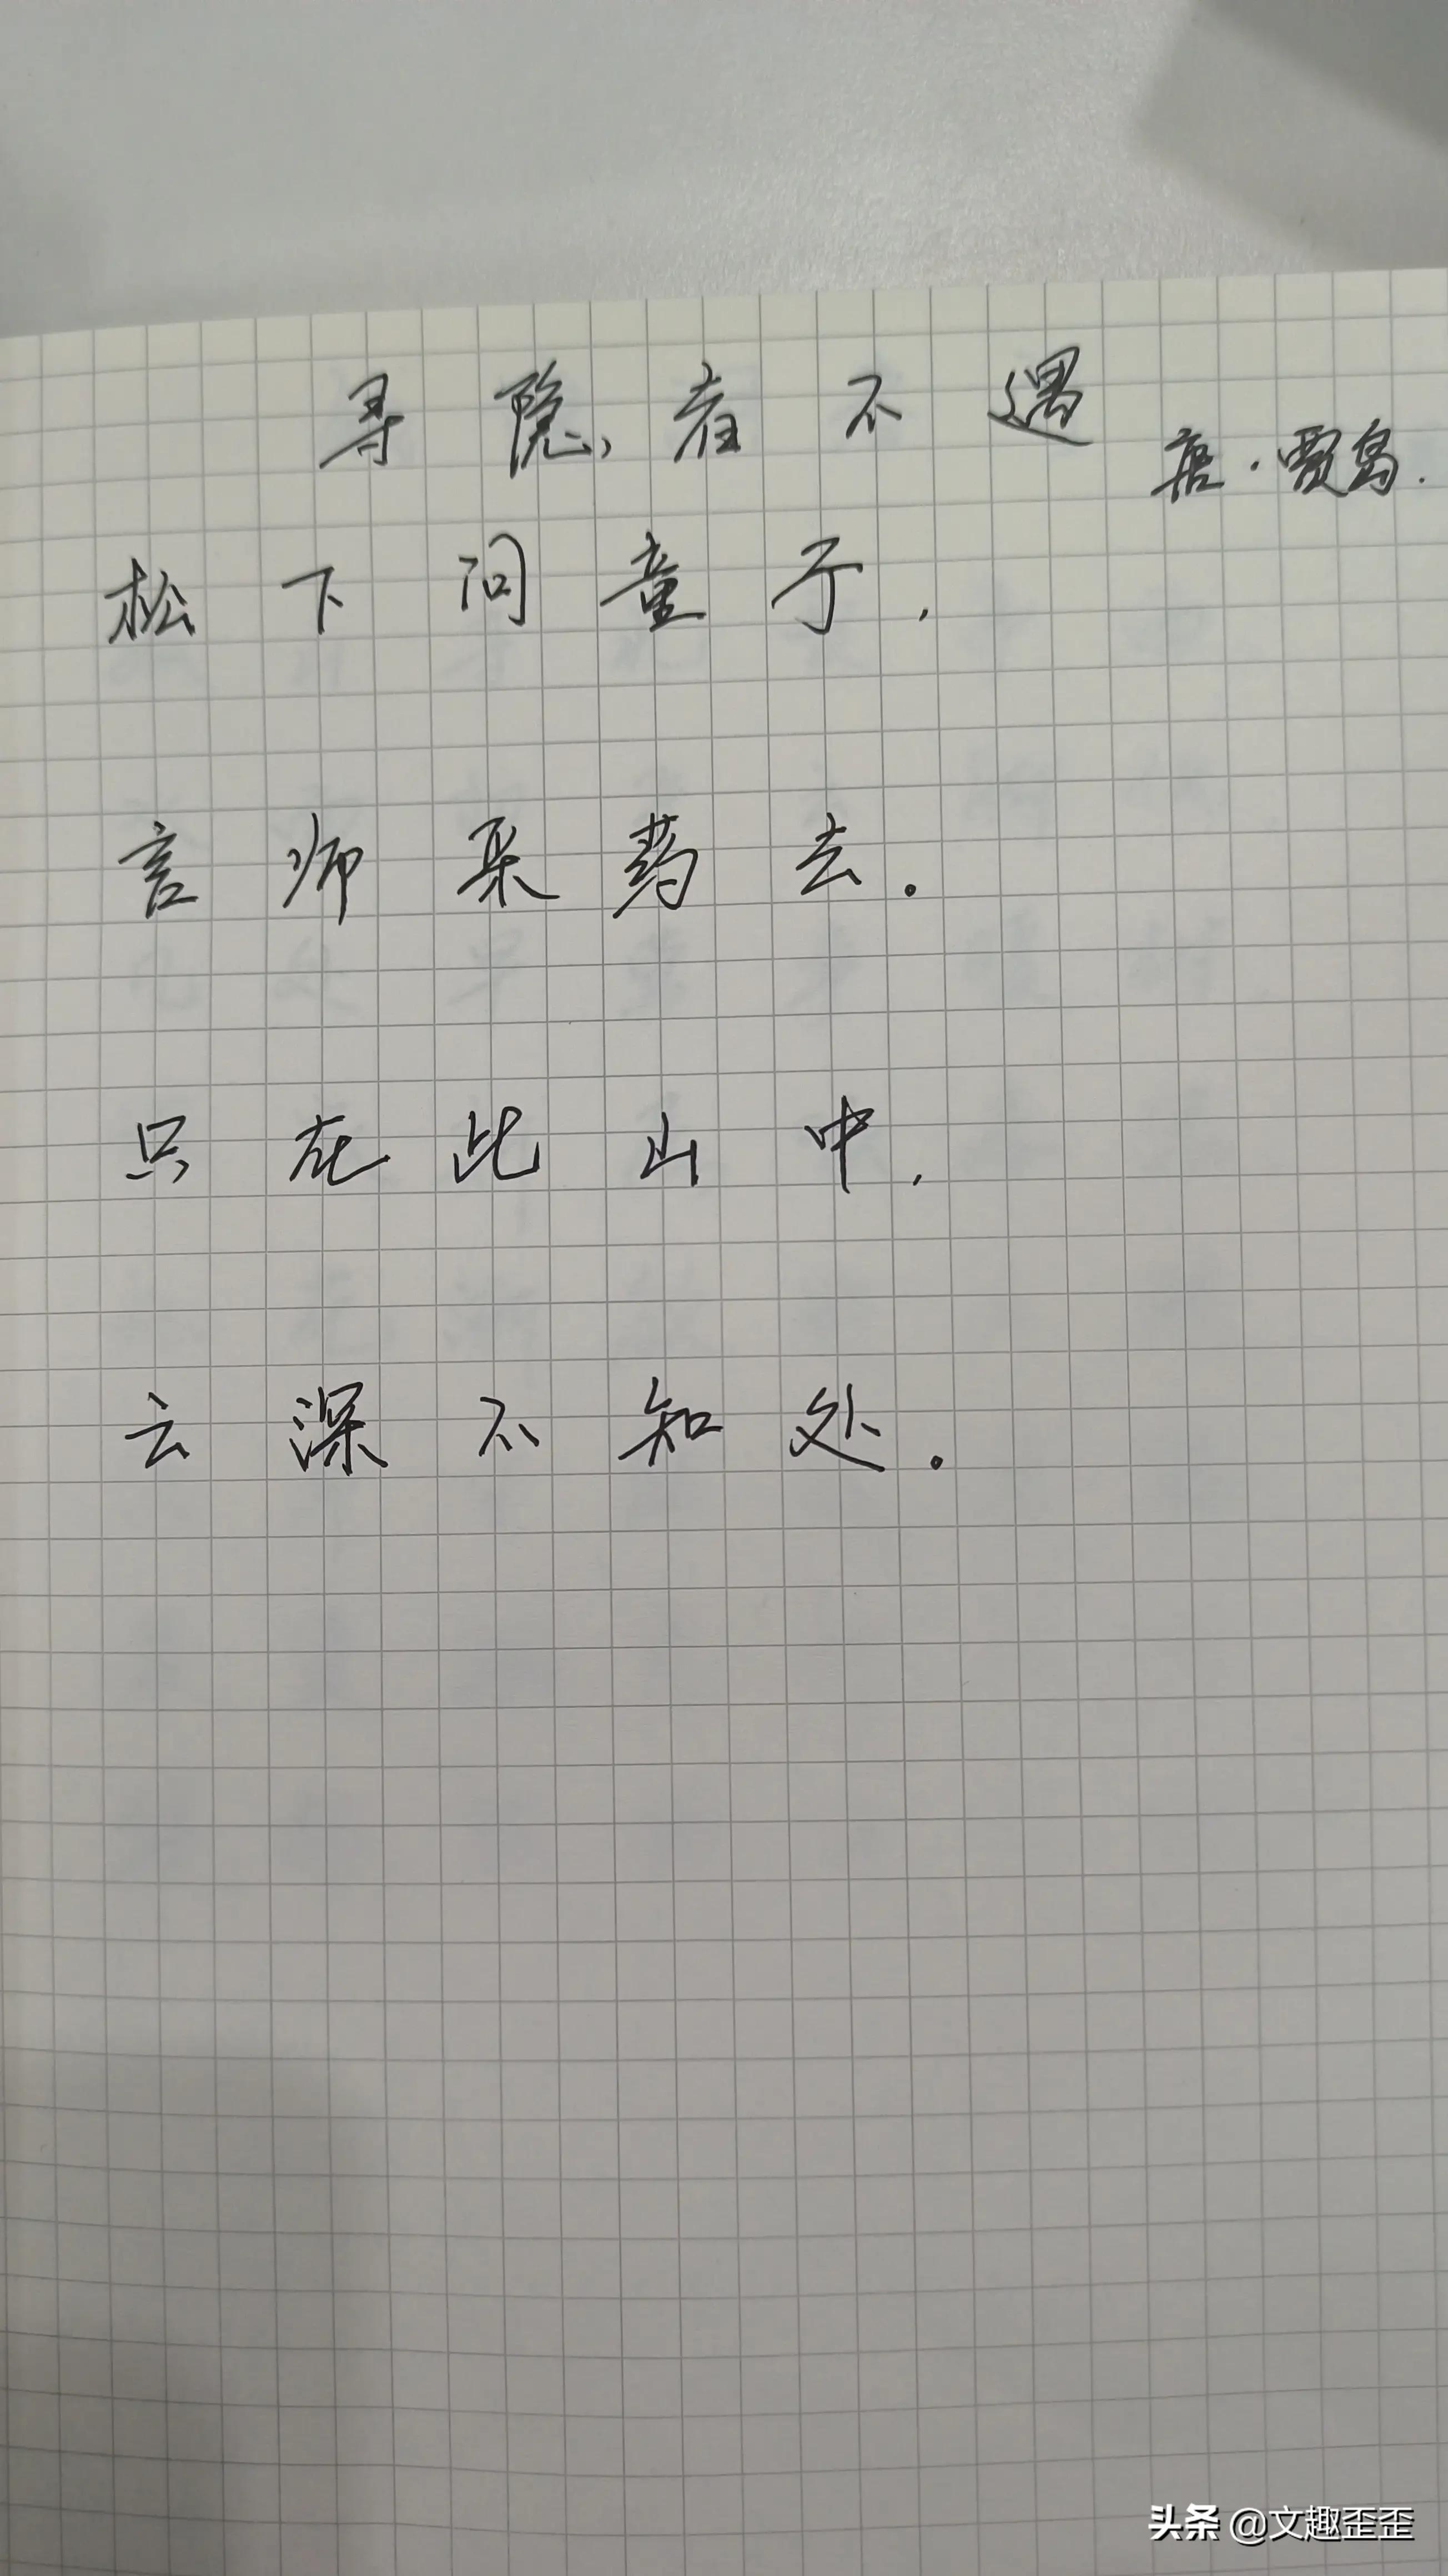 寻隐者不遇
唐·贾岛.
松下问童子,
言师采药去.
只在此山中,
云深不知处.
头条 @文趣歪歪